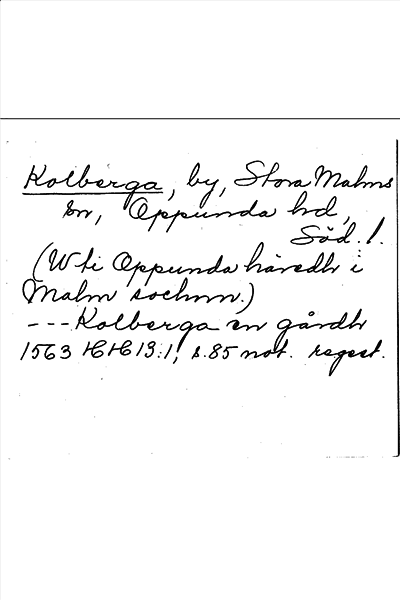 Kolberga, by, Stora Malms
sn, Oppunda hd,
Söd. l.
(W ti Oppunda häredh i
Malm sochnn.)
--- Kolberga en gårdh
1563 HH 13:1, s. 85 not. regest.